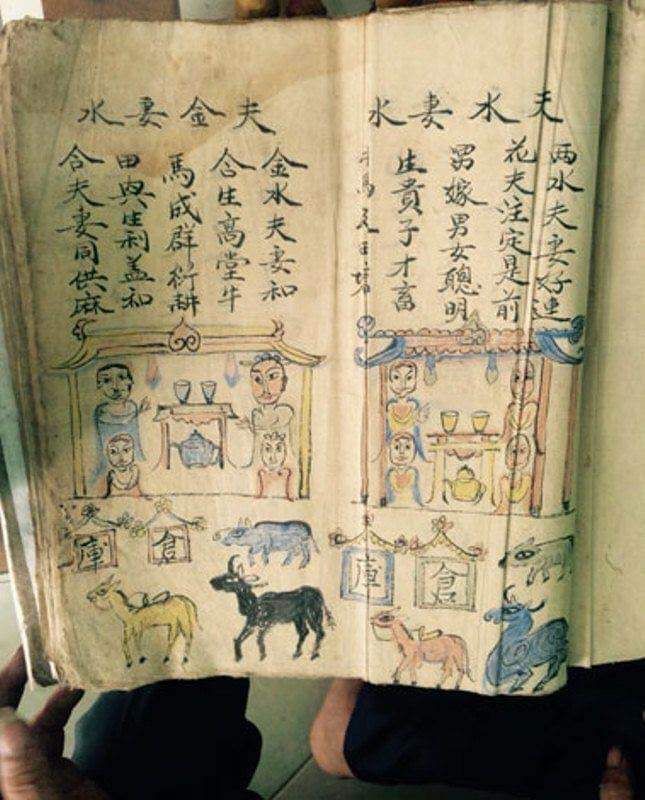 夫水妻水
两水夫妻好連
花夫注定是前
男嫁男女聰明
生貴子才畜
馬
田
夫金妻水
金水夫妻和
合生高堂牛
馬成群衍耕
田與生利益和
合夫妻同供麻
倉
庫
倉
庫